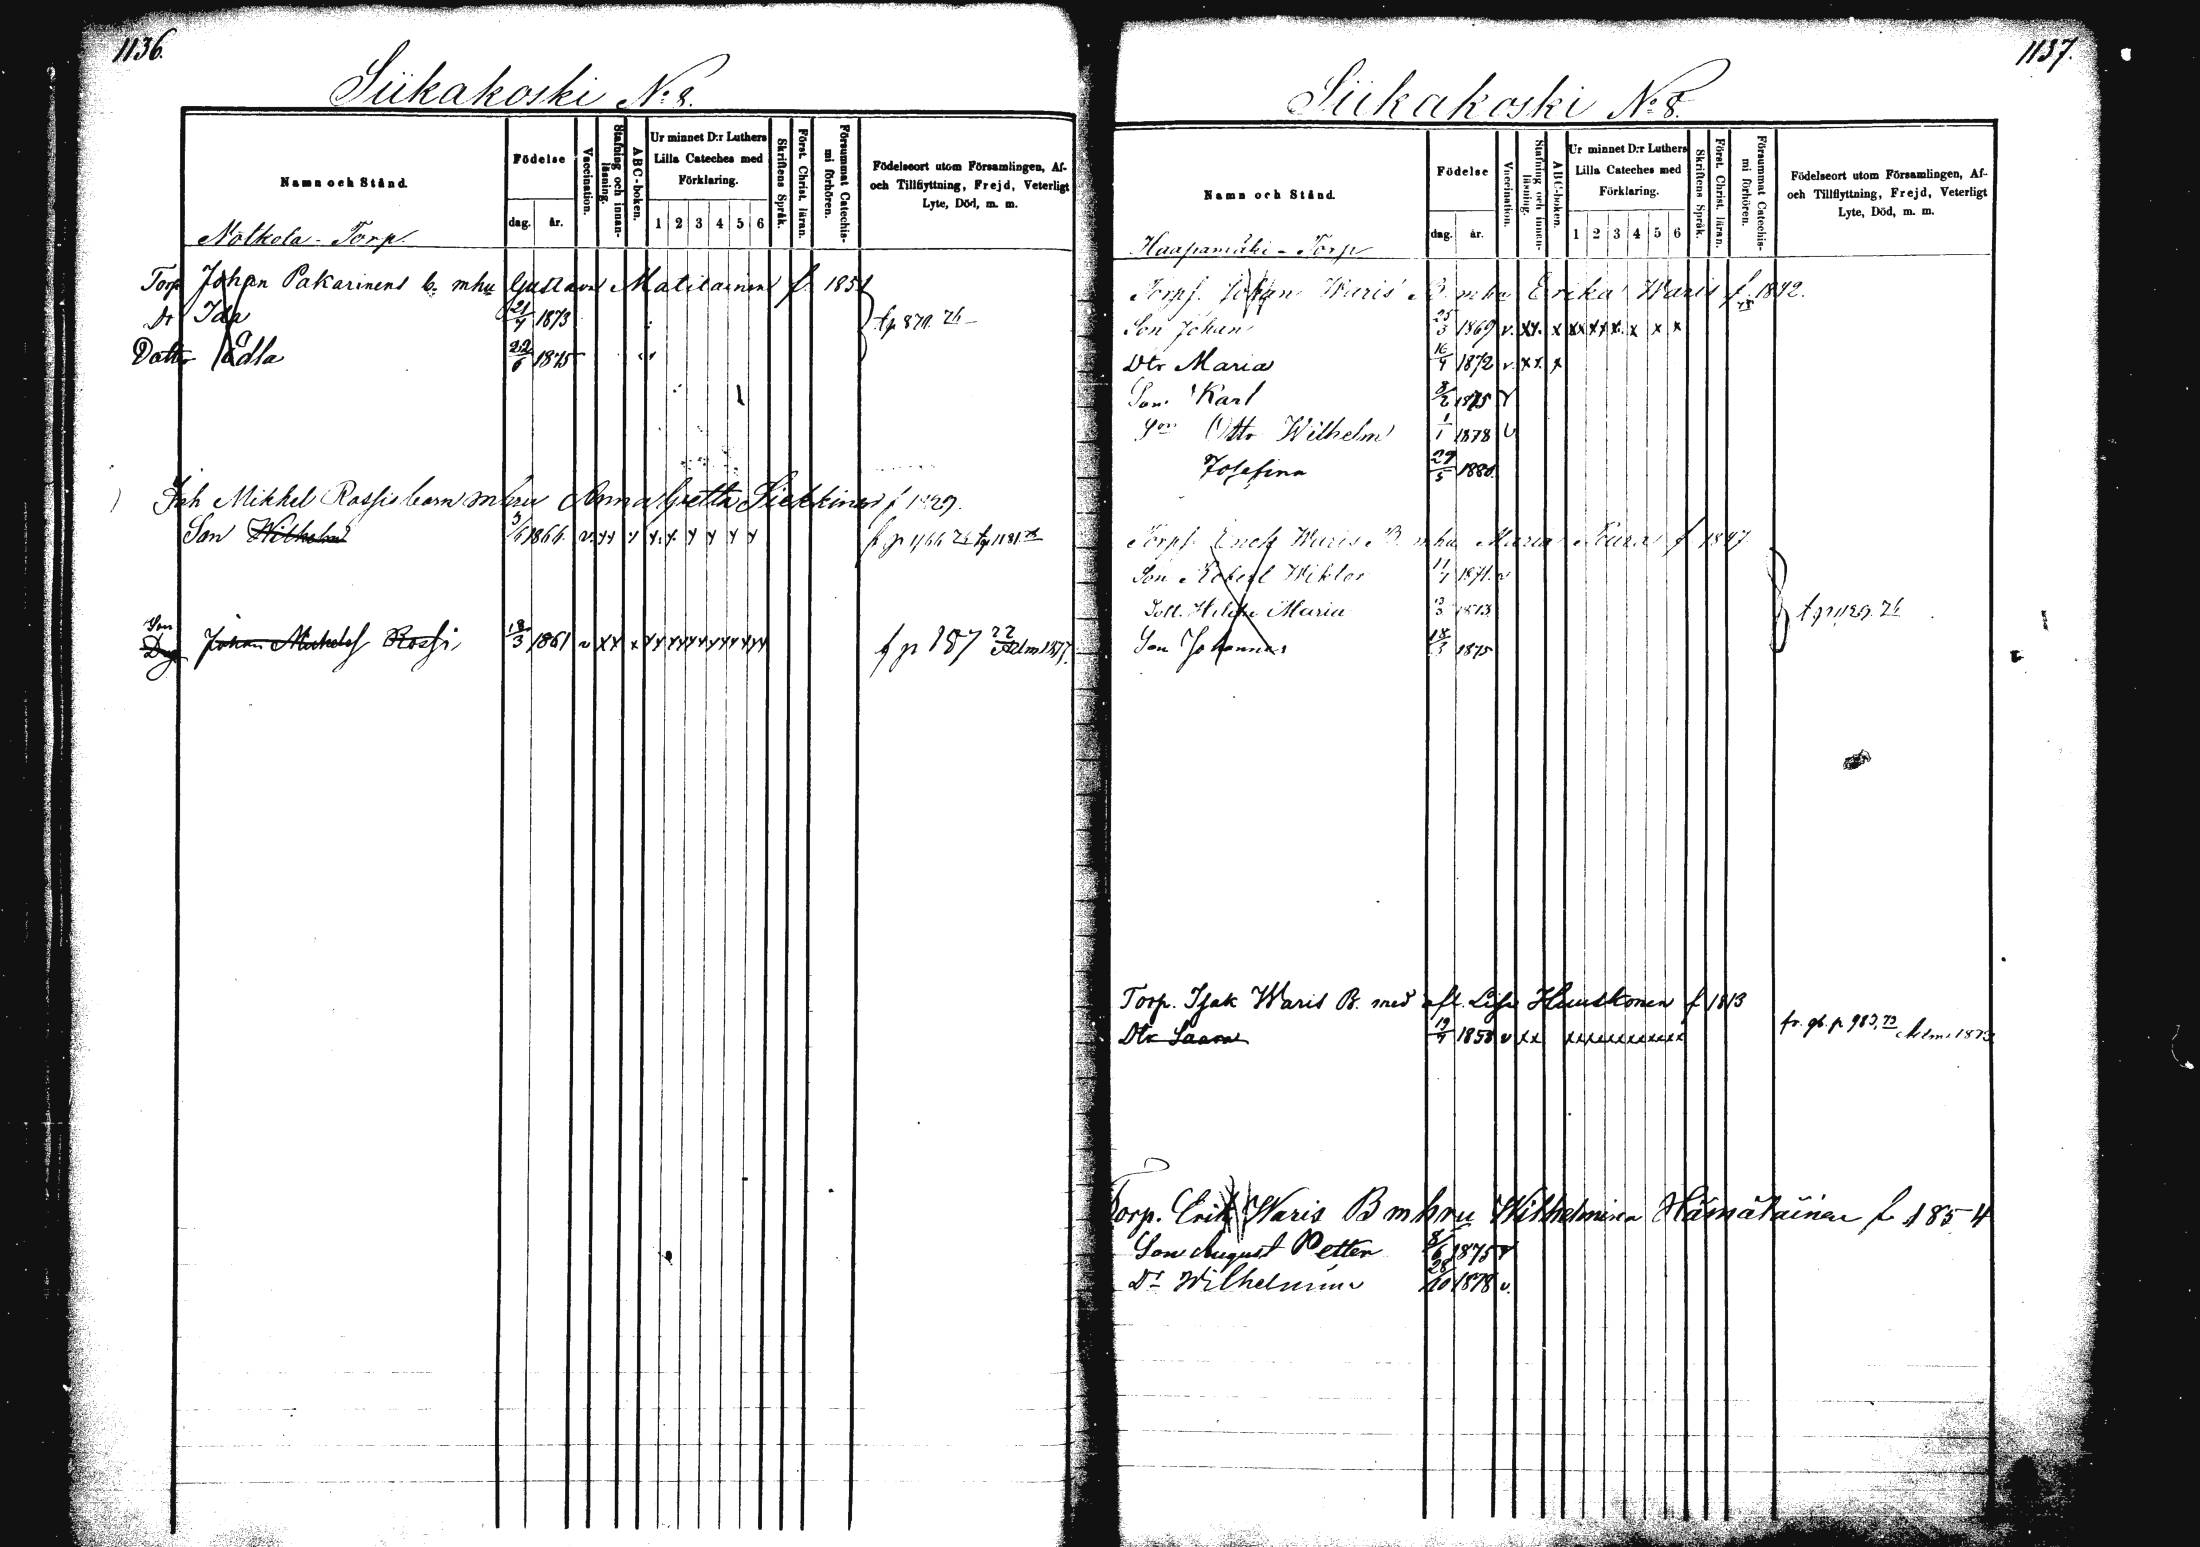 1136.
Siikakoski No 8.
Namn och Stånd.
Födelse
dag. år.
Vaccination.
Stafning och innanläsning.
ABC-boken.
Ur minnet D:r Luthers
Lilla Cateches med
Förklaring.
1 2 3 4 5 6
Skriftens Språk.
Först. Christ. läran.
Försummat Catechismi förhören.
Födelseort utom Församlingen, Af-
och Tillflyttning, Frejd, Veterligt
Lyte, Död, m. m.
Notkola - Torp.
Torp Johan Pakarinens b. mhu Gustava Matilainen f. 1851
Dr Ida 21/4 1873
Dotter Edla 22/6 1875
Inh Mikkel Rossis barn mhru Anna Gretta Siekkinen f 1829.
Son Wilhelm 3/6 1866 v. xx x x x x x x x
Son
Drg Johan Mickels Rossi 18/3 1861 v xx x xx xx xx xx xx xx f p 187 77 Adm 1877.
1137.
Siikakoski No 8.
Namn och Stånd.
Födelse
dag. år.
Vaccination.
Stafning och innanläsning.
ABC-boken.
Ur minnet D:r Luthers
Lilla Cateches med
Förklaring.
1 2 3 4 5 6
Skriftens Språk.
Först. Christ. läran.
Försummat Catechismi förhören.
Födelseort utom Församlingen, Af-
och Tillflyttning, Frejd, Veterligt
Lyte, Död, m. m.
Haapamäki - Torp
Torpf. Johan Waris B. mhu Erika Waris f. 1842.
Son Johan 25/3 1869 v. xx. x xx xx x. x x x
Dtr Maria 16/4 1872 v. xx. x
Son Karl 8/2 1875 v
Son Otto Wilhelm 1/1 1878 v
Josefina 29/5 1880.
Torpf. Erick Waris B. mhu Maria f 1847.
Son Robert Wiktor 11/1 1871. v
Dott. Hilda Maria 1873
Son Johannes 18/3 1875
t p 1129. 76
Torp. Isak Waris B. med afl. Lisa Huuskonen f 1813
Dtr Saara 19/4 1858 v xx xxxxxxxxxxx fr. gb. p 983. 73 Adm. 1873
Torp. Erik Waris B mhru Wilhelmina Hämäläinen f 1854
Son August Petter 8/6 1875 v
Dr Wilhelmina 28/10 1878 v.